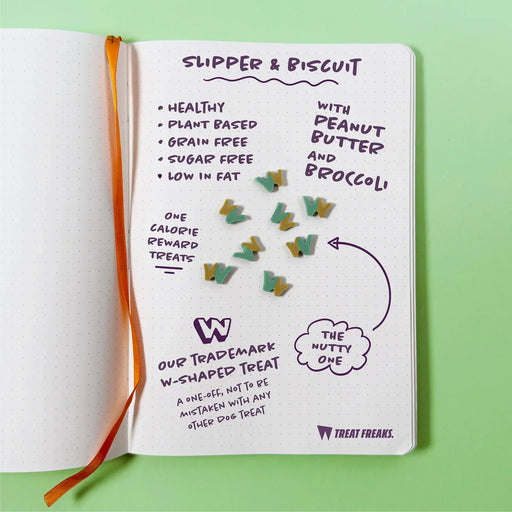 SLIPPER & BISCUIT
• HEALTHY
• PLANT BASED
• GRAIN FREE
• SUGAR FREE
• LOW IN FAT
WITH
PEANUT
BUTTER
AND
BROCCOLI
ONE
CALORIE
REWARD
TREATS
THE
NUTTY
ONE
W
OUR TRADEMARK
W-SHAPED TREAT
A ONE-OFF, NOT TO BE
MISTAKEN WITH ANY
OTHER DOG TREAT
TREAT FREAKS.